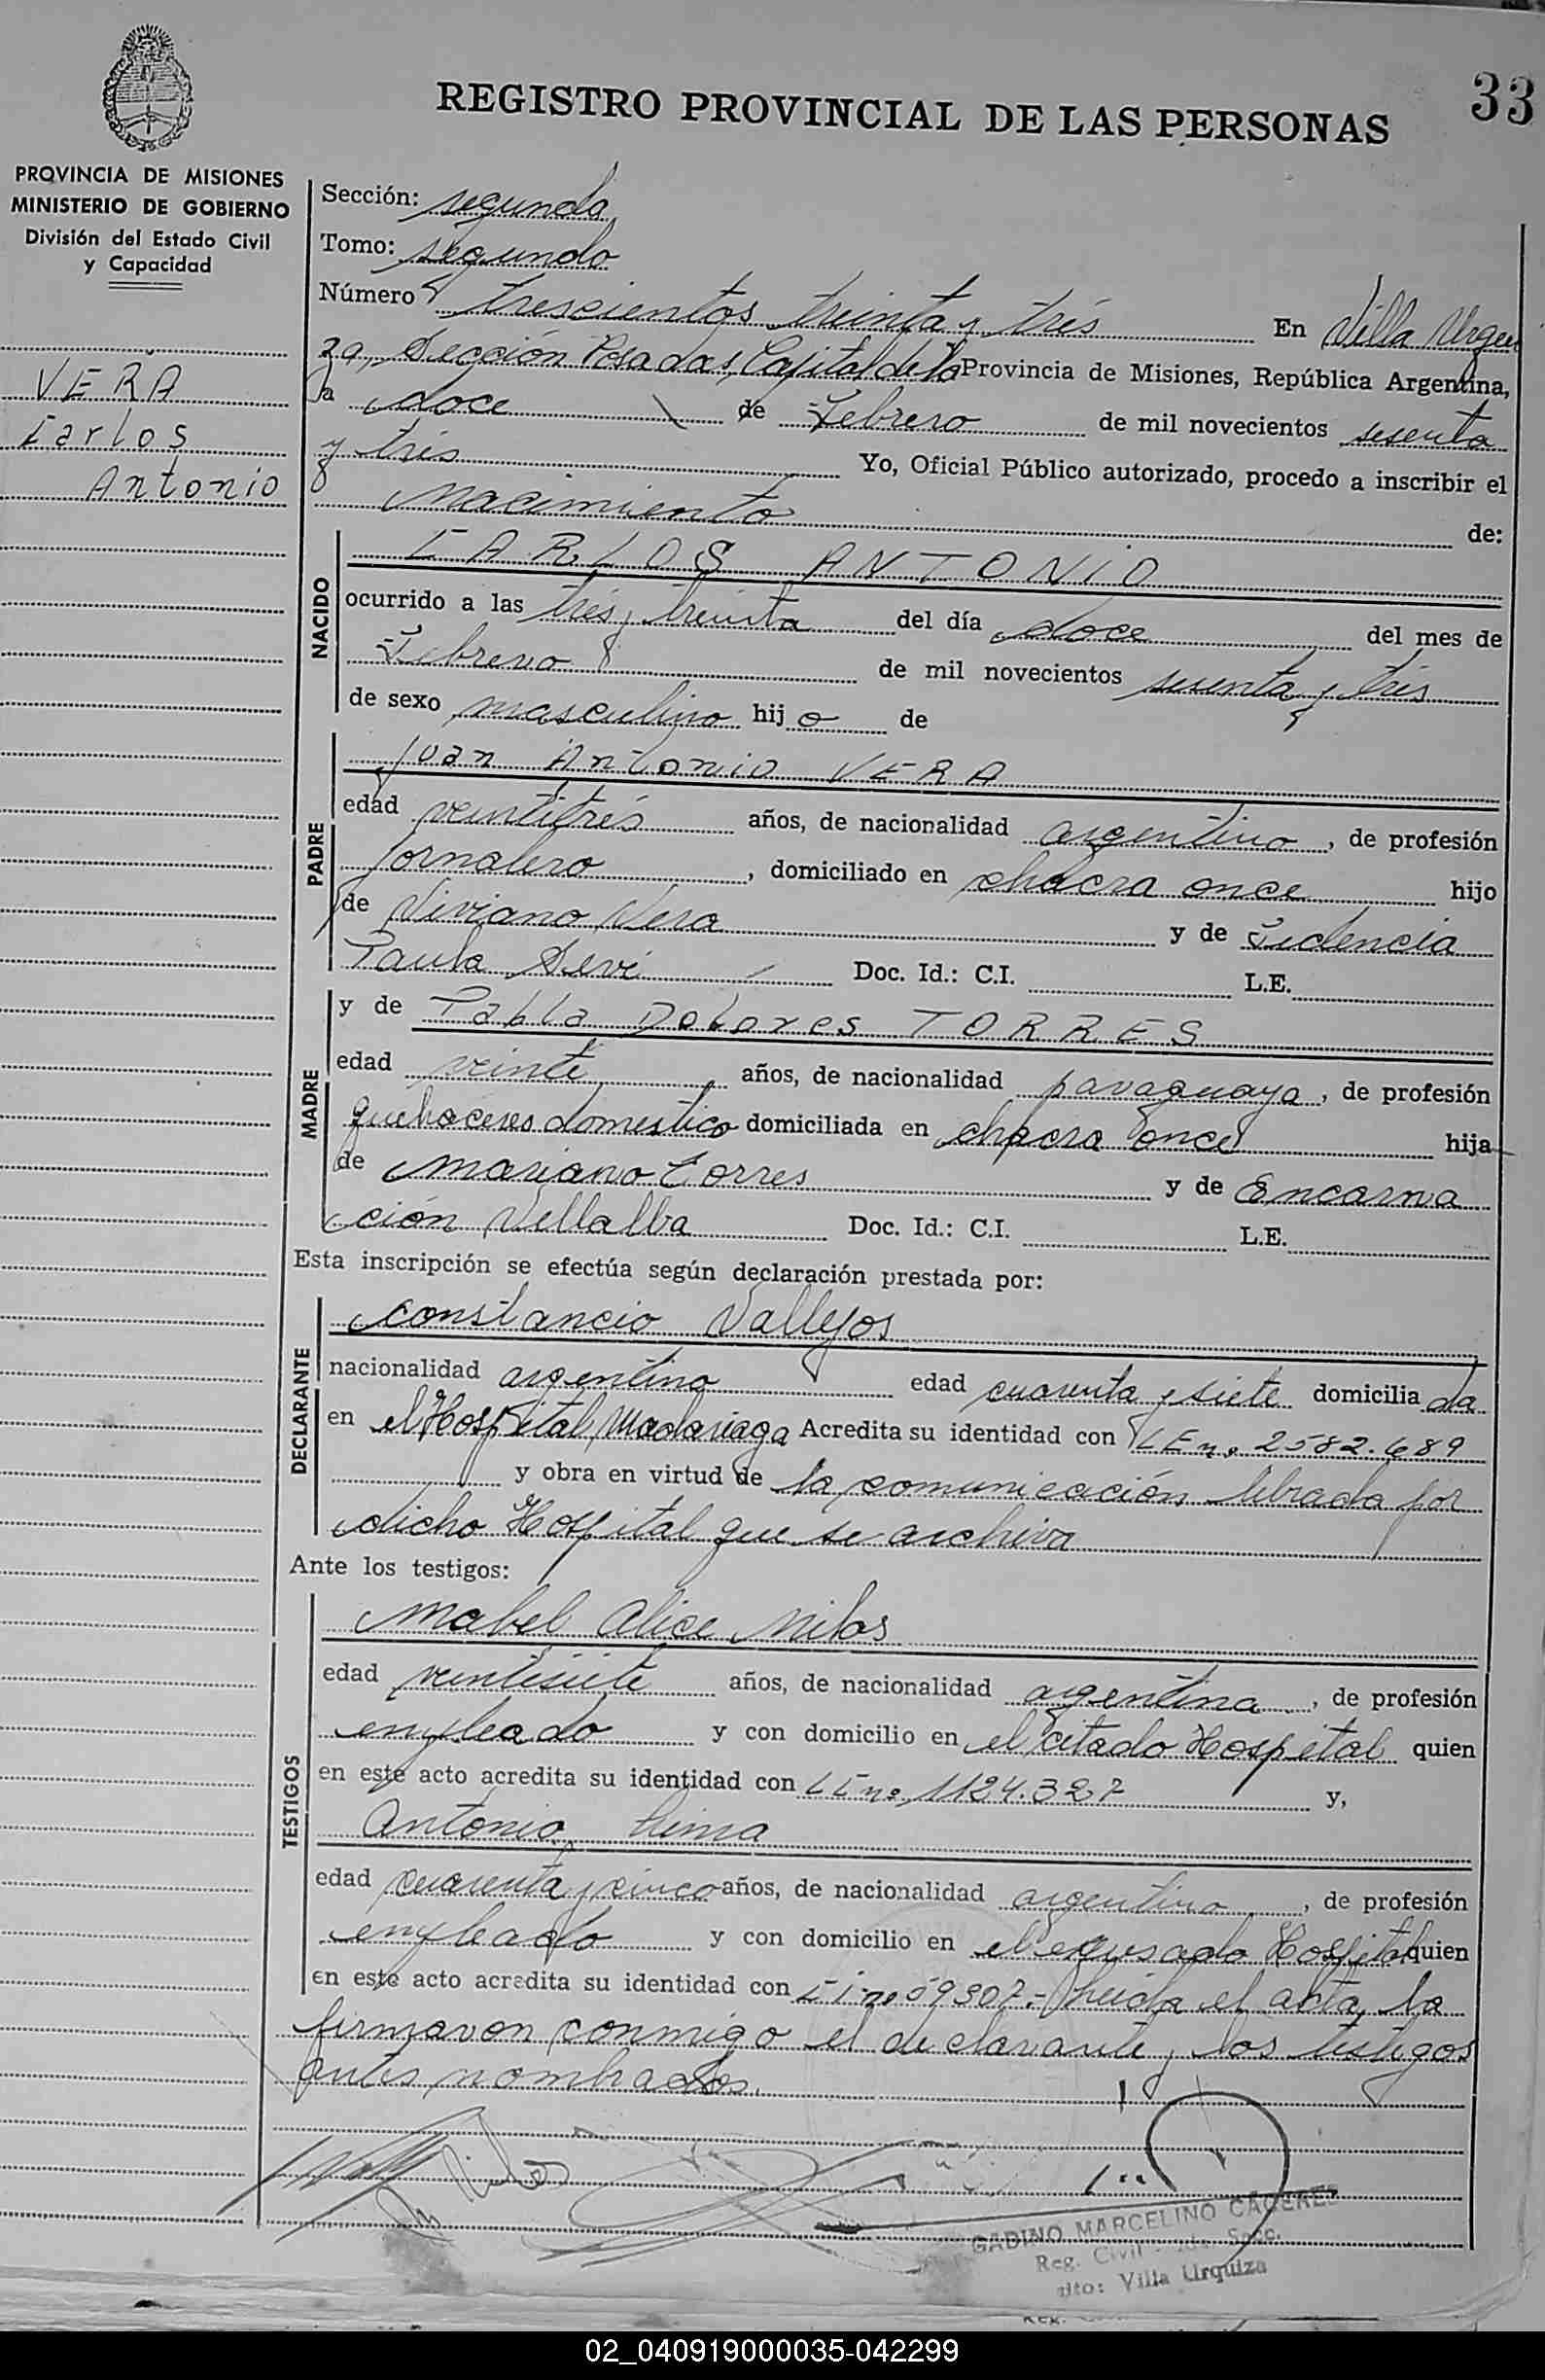 REGISTRO PROVINCIAL DE LAS PERSONAS
33
PROVINCIA DE MISIONES
MINISTERIO DE GOBIERNO
División del Estado Civil
y Capacidad
VERA
Carlos
Antonio
Sección: segunda
Tomo: segundo
Número trescientos treinta y trés En Villa Urqui
za, Sección Posadas, Capital de la Provincia de Misiones, República Argentina,
a doce de Febrero de mil novecientos sesenta
y trés Yo, Oficial Público autorizado, procedo a inscribir el
nacimiento de:
NACIDO
CARLOS ANTONIO
ocurrido a las trés y treinta del día doce del mes de
Febrero de mil novecientos sesenta y trés
de sexo masculino hijo de
PADRE
Juan Antonio VERA
edad veintitrés años, de nacionalidad argentino, de profesión
Jornalero, domiciliado en chacra once hijo
de Viviano Vera y de Fidencia
Paula Doc. Id.: C.I. L.E.
MADRE
y de Pabla Dolores TORRES
edad veinte años, de nacionalidad paraguaya, de profesión
quehaceres domestico domiciliada en chacra once hija
de Mariano Torres y de Encarna
ción Villalba Doc. Id.: C.I. L.E.
Esta inscripción se efectúa según declaración prestada por:
DECLARANTE
Constancio Vallejos
nacionalidad argentino edad cuarenta y siete domicilia da
en el Hospital Madariaga Acredita su identidad con LE nº 2582.689
y obra en virtud de la comunicación librada por
dicho Hospital que se archiva
Ante los testigos:
TESTIGOS
Mabel Alice Milos
edad veintisiete años, de nacionalidad argentina, de profesión
empleado y con domicilio en el citado Hospital quien
en este acto acredita su identidad con LE nº 1124.327 y,
Antonio Lima
edad cuarenta y cinco años, de nacionalidad argentino, de profesión
empleado y con domicilio en el expresado Hospital quien
en este acto acredita su identidad con CI nº 59307.- Leida el acta, la
firmaron conmigo el declarante y los testigos
antes nombrados.
GADINO MARCELINO CACERES
Reg. Civil Secc.
Villa Urquiza
02_040919000035-042299